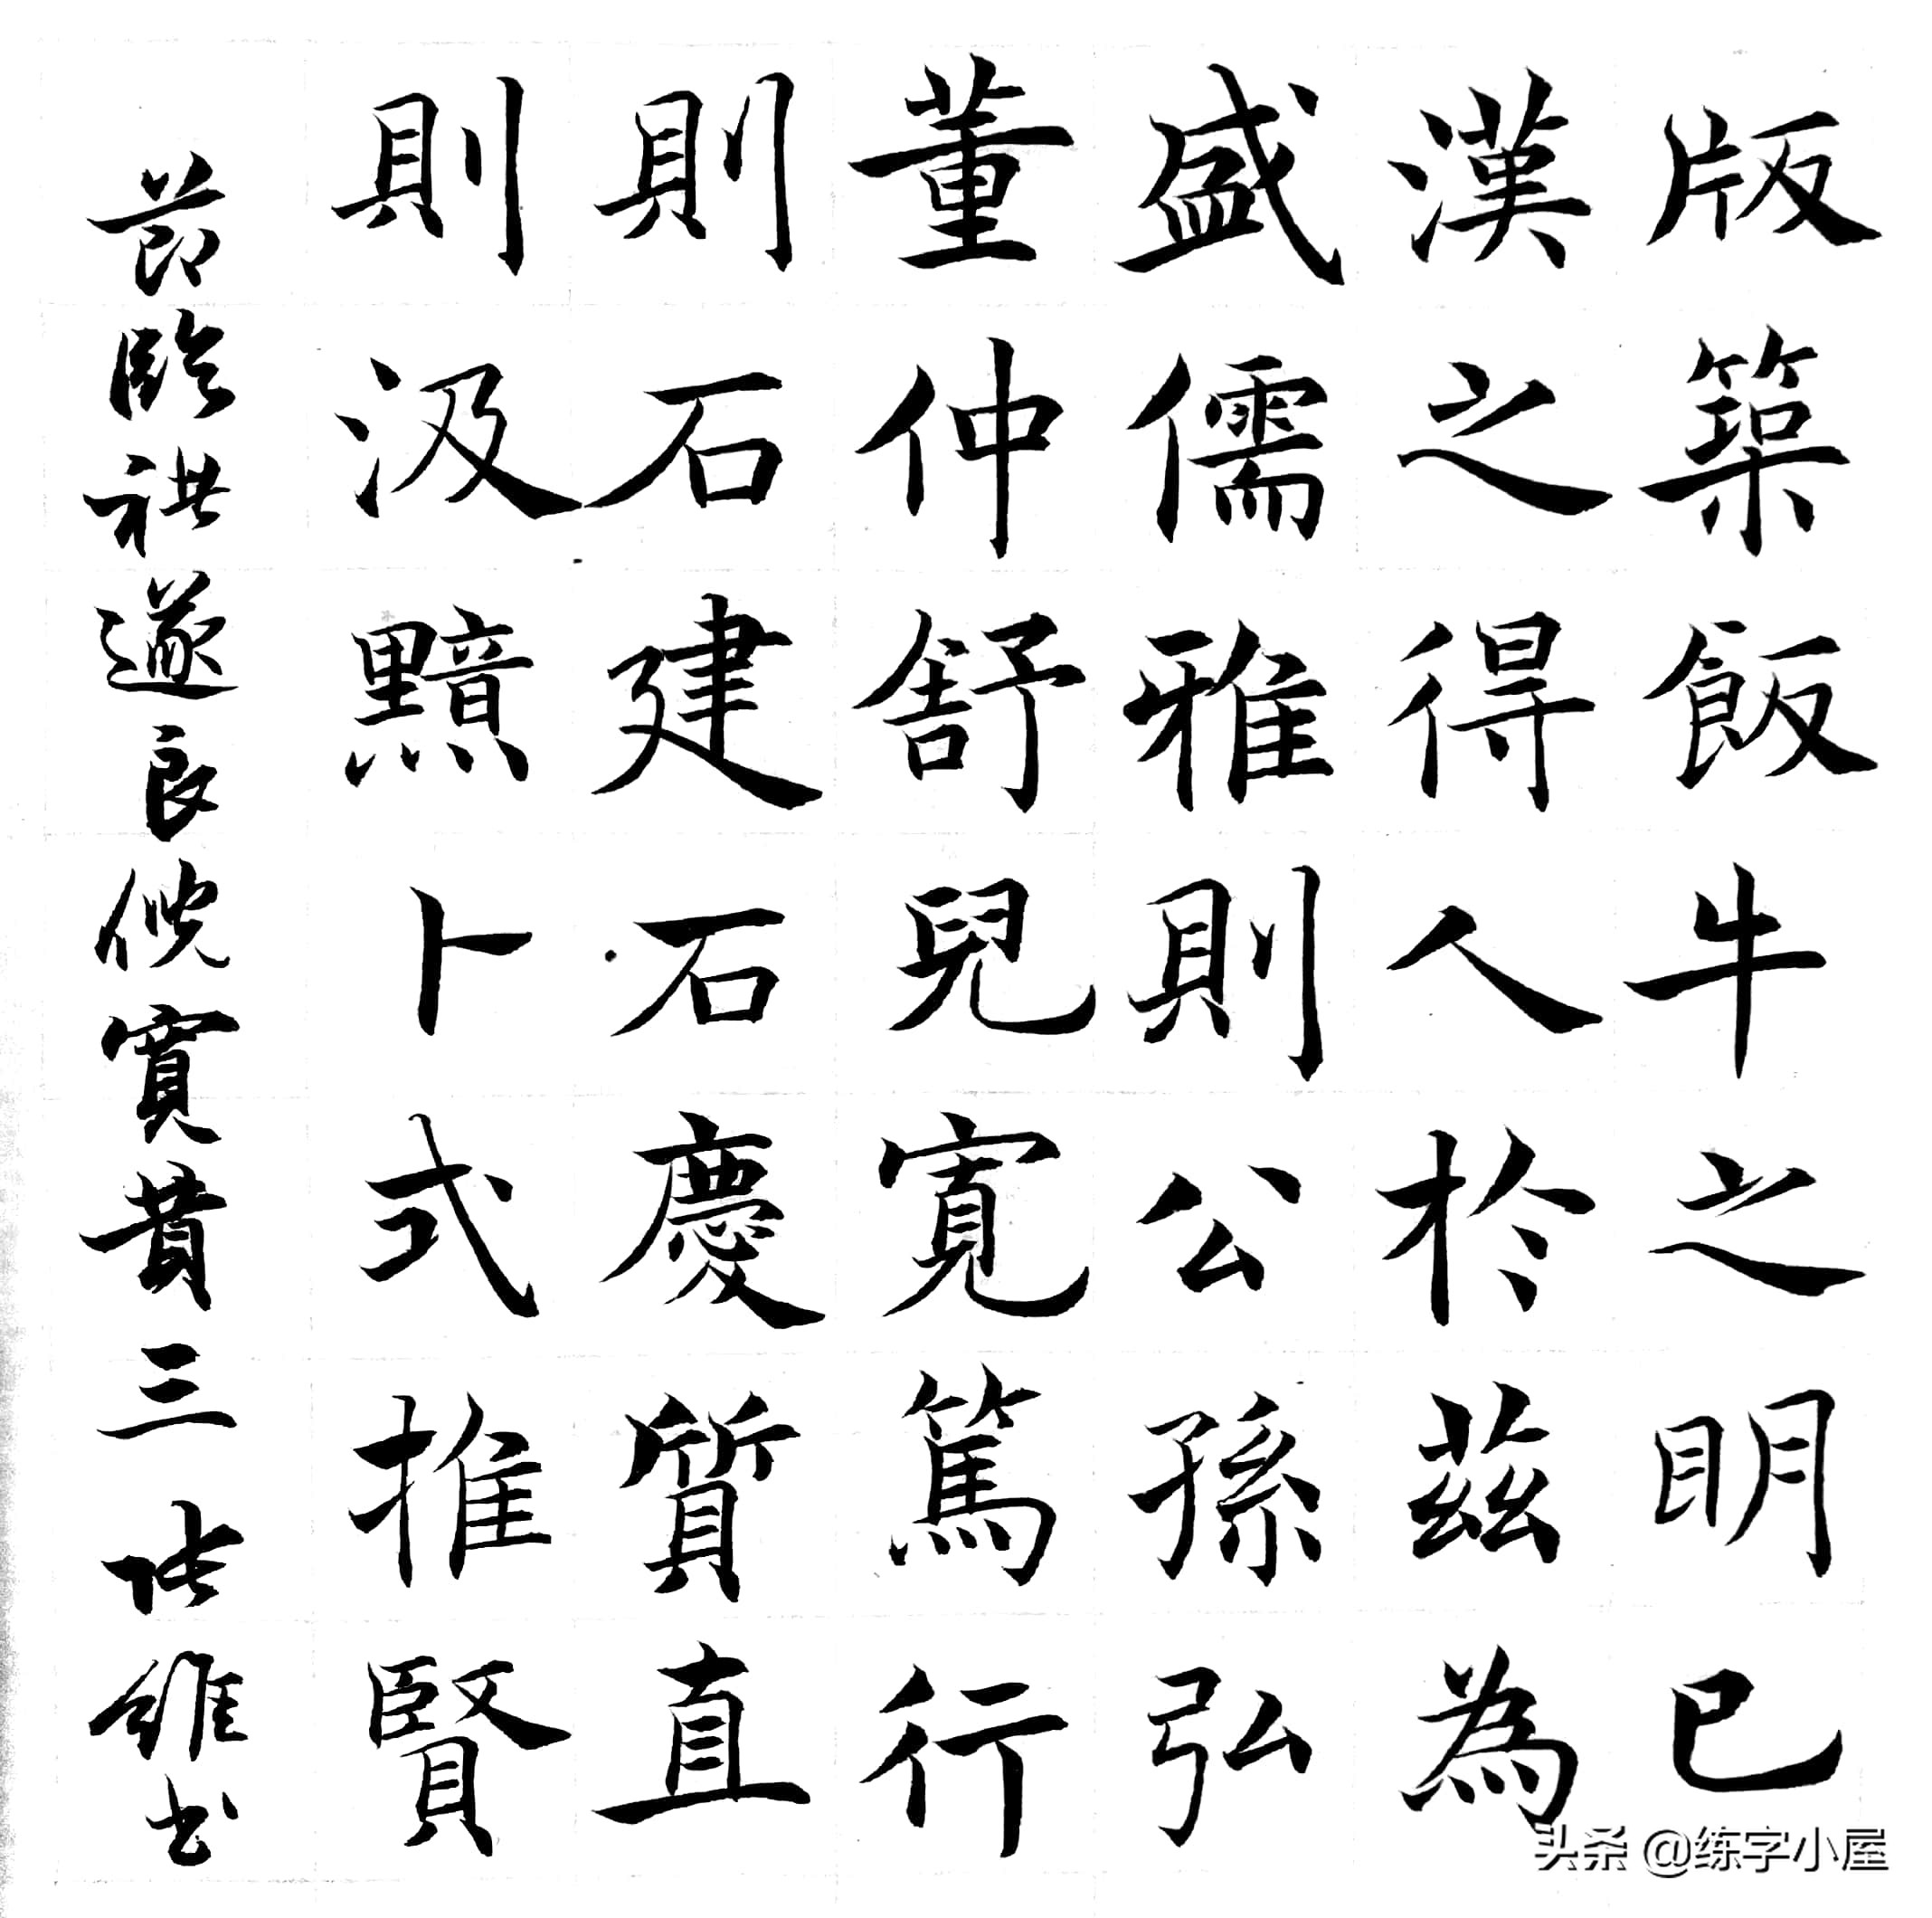 版築飯牛之明已
漢之得人於茲為
盛儒雅則公孫弘
董仲舒兒寬篤行
則石建石慶質直
則汲黯卜式推賢
節臨褚遂良倪寬贊三 維書
头杂 @练字小屋